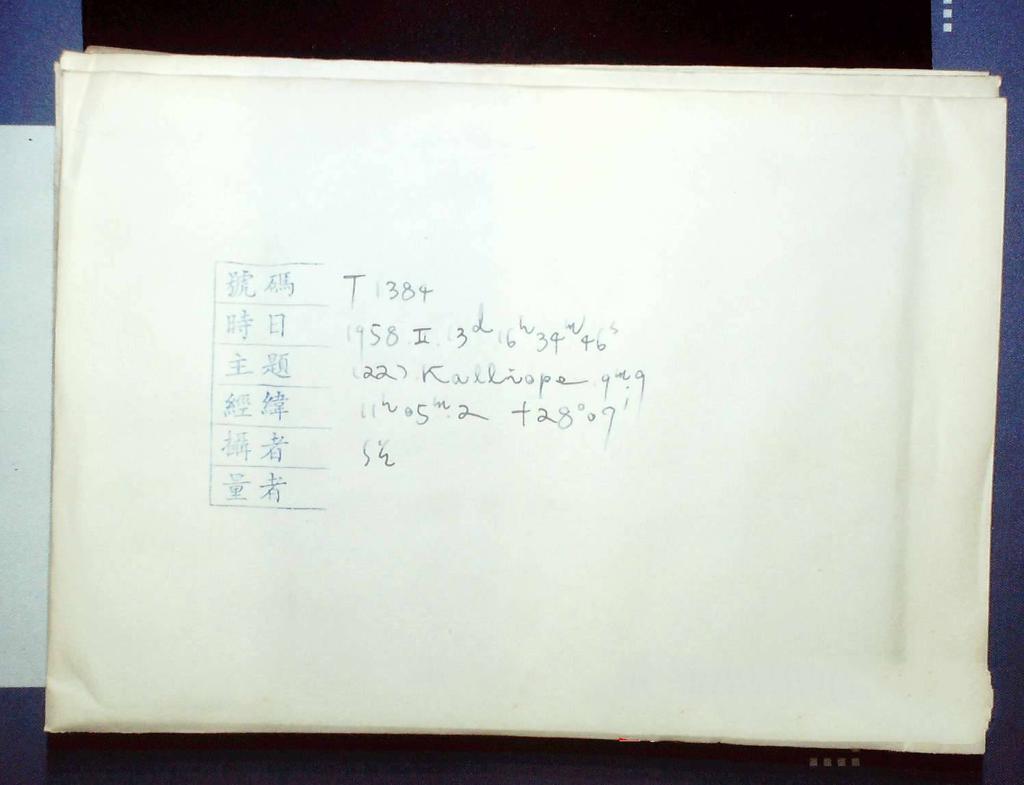 號碼 T 1384
時日 1958 II 13ᵈ 16ʰ 34ᵐ 46ˢ
主題 (22) Kalliope 9ᵐ.9
經緯 11ʰ05ᵐ.2 +28°09'
攝者
量者